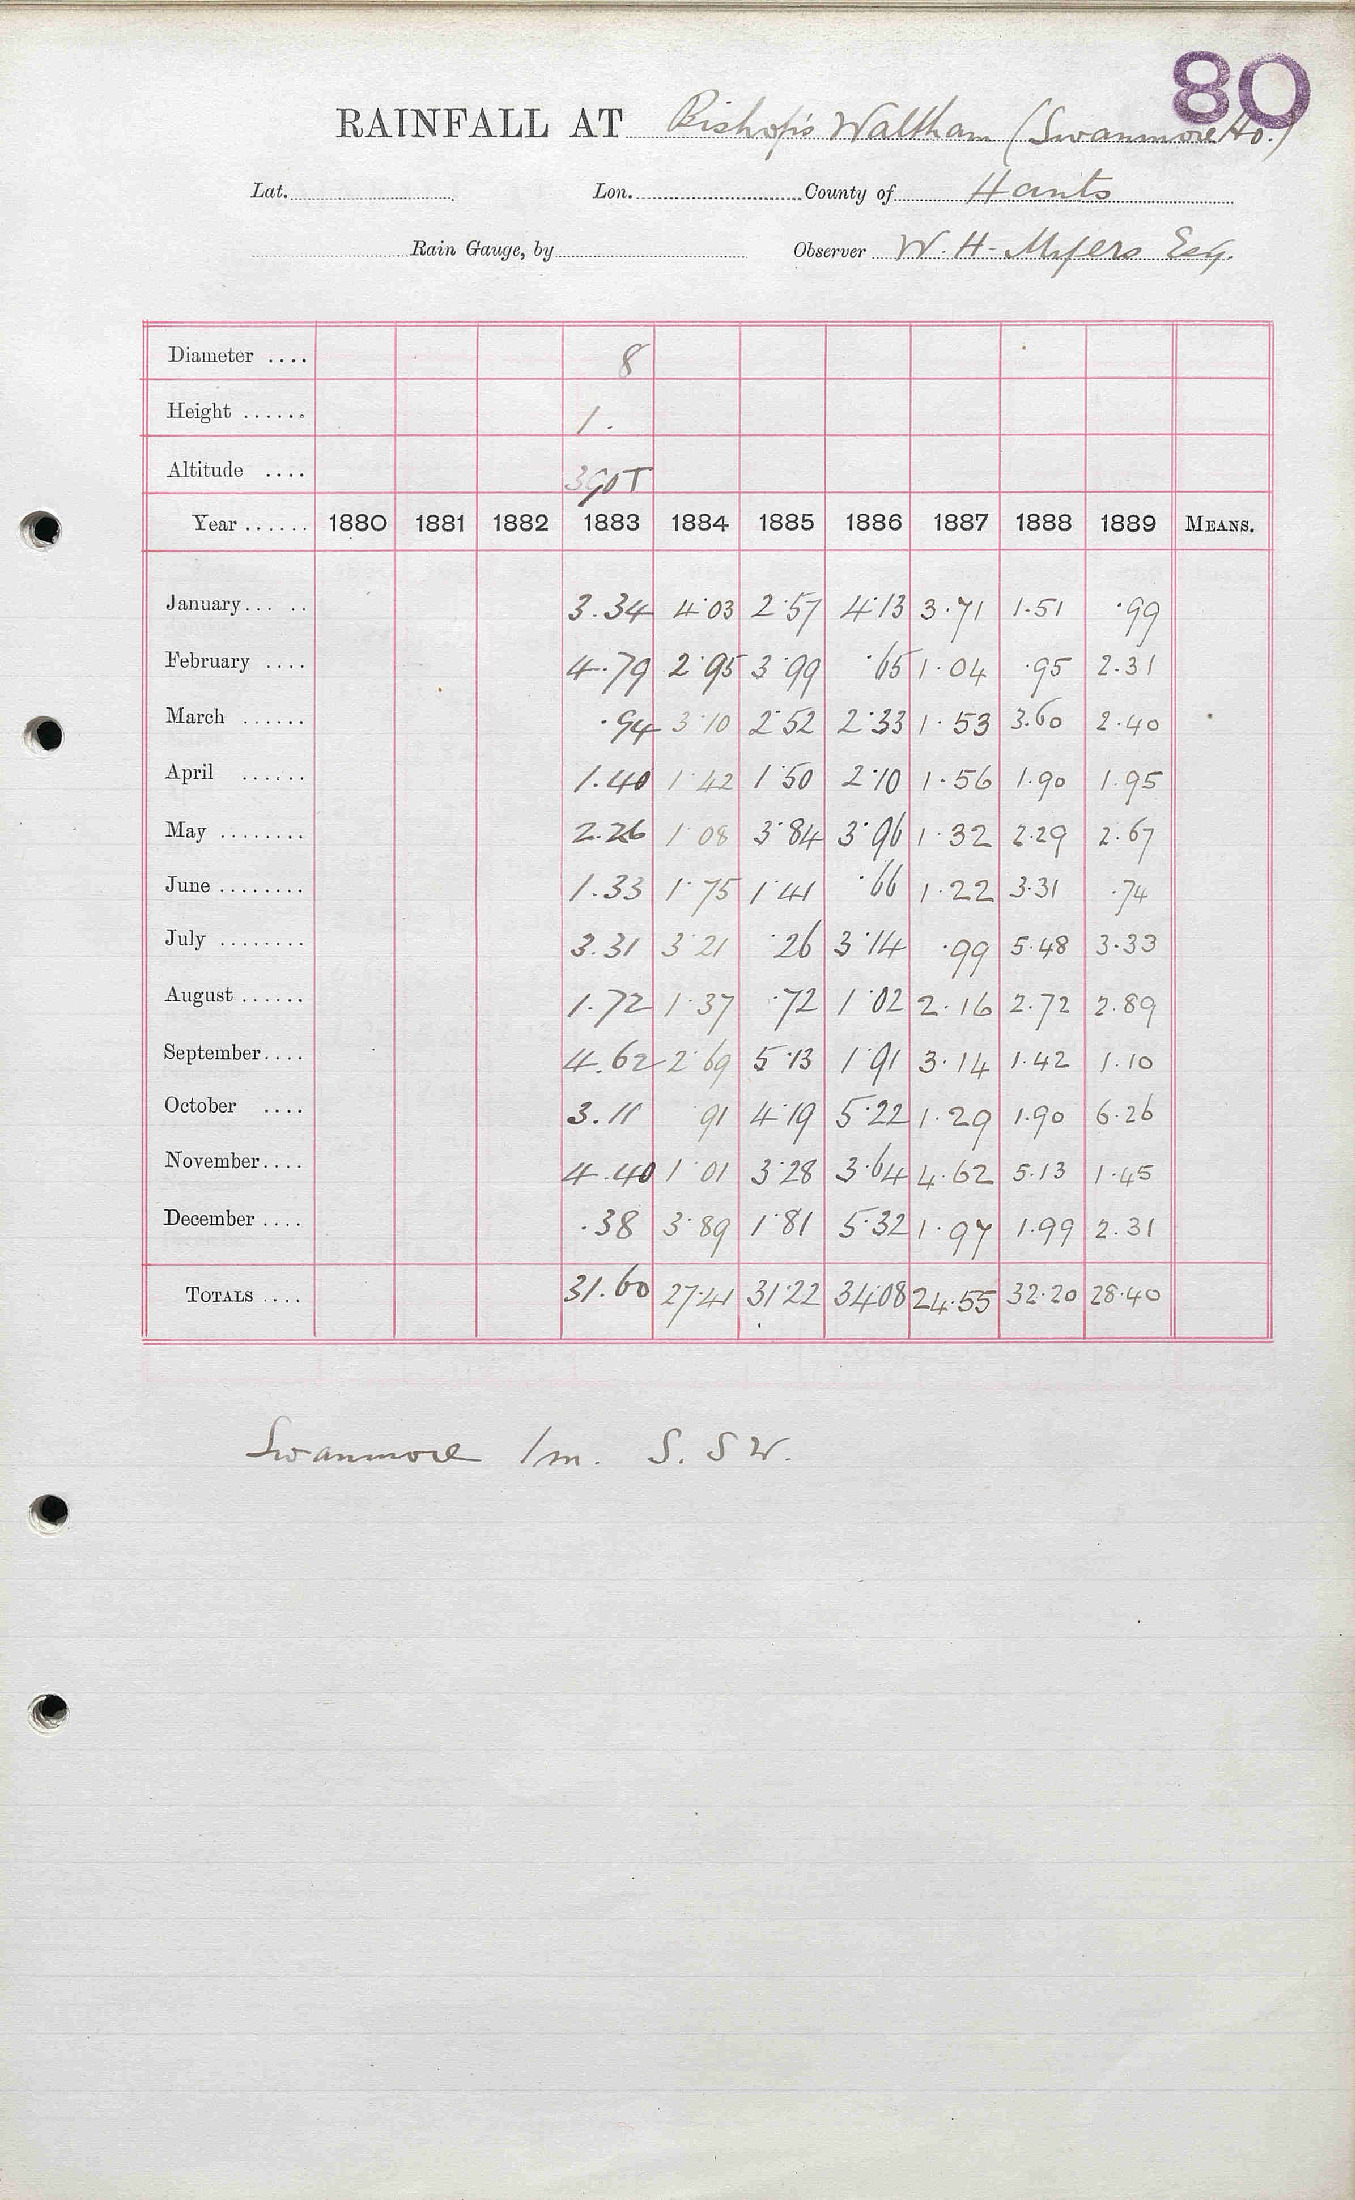 80
RAINFALL AT Bishop's Waltham (Swanmore Ho.)
Lat. Lon. County of Hants
Rain Gauge, by Observer W. H. Myers Esq.
Diameter .... 8
Height ...... 1.
Altitude .... 390T
Year ...... 1880 1881 1882 1883 1884 1885 1886 1887 1888 1889 MEANS.
January... .. 3.34 4.03 2.57 4.13 3.71 1.51 .99
February .... 4.79 2.95 3.99 .65 1.04 .95 2.31
March ...... .94 3.10 2.52 2.33 1.53 3.60 2.40
April ...... 1.40 1.42 1.50 2.10 1.56 1.90 1.95
May ........ 2.26 1.08 3.84 3.96 1.32 2.29 2.67
June ........ 1.33 1.75 1.41 .66 1.22 3.31 .74
July ........ 3.31 3.21 .26 3.14 .99 5.48 3.33
August ...... 1.72 1.37 .72 1.02 2.16 2.72 2.89
September.... 4.62 2.69 5.13 1.91 3.14 1.42 1.10
October .... 3.11 91 4.19 5.22 1.29 1.90 6.26
November.... 4.40 1.01 3.28 3.64 4.62 5.13 1.45
December .... .38 3.89 1.81 5.32 1.97 1.99 2.31
TOTALS .... 31.60 27.41 31.22 34.08 24.55 32.20 28.40
Swanmore 1m. S. S W.